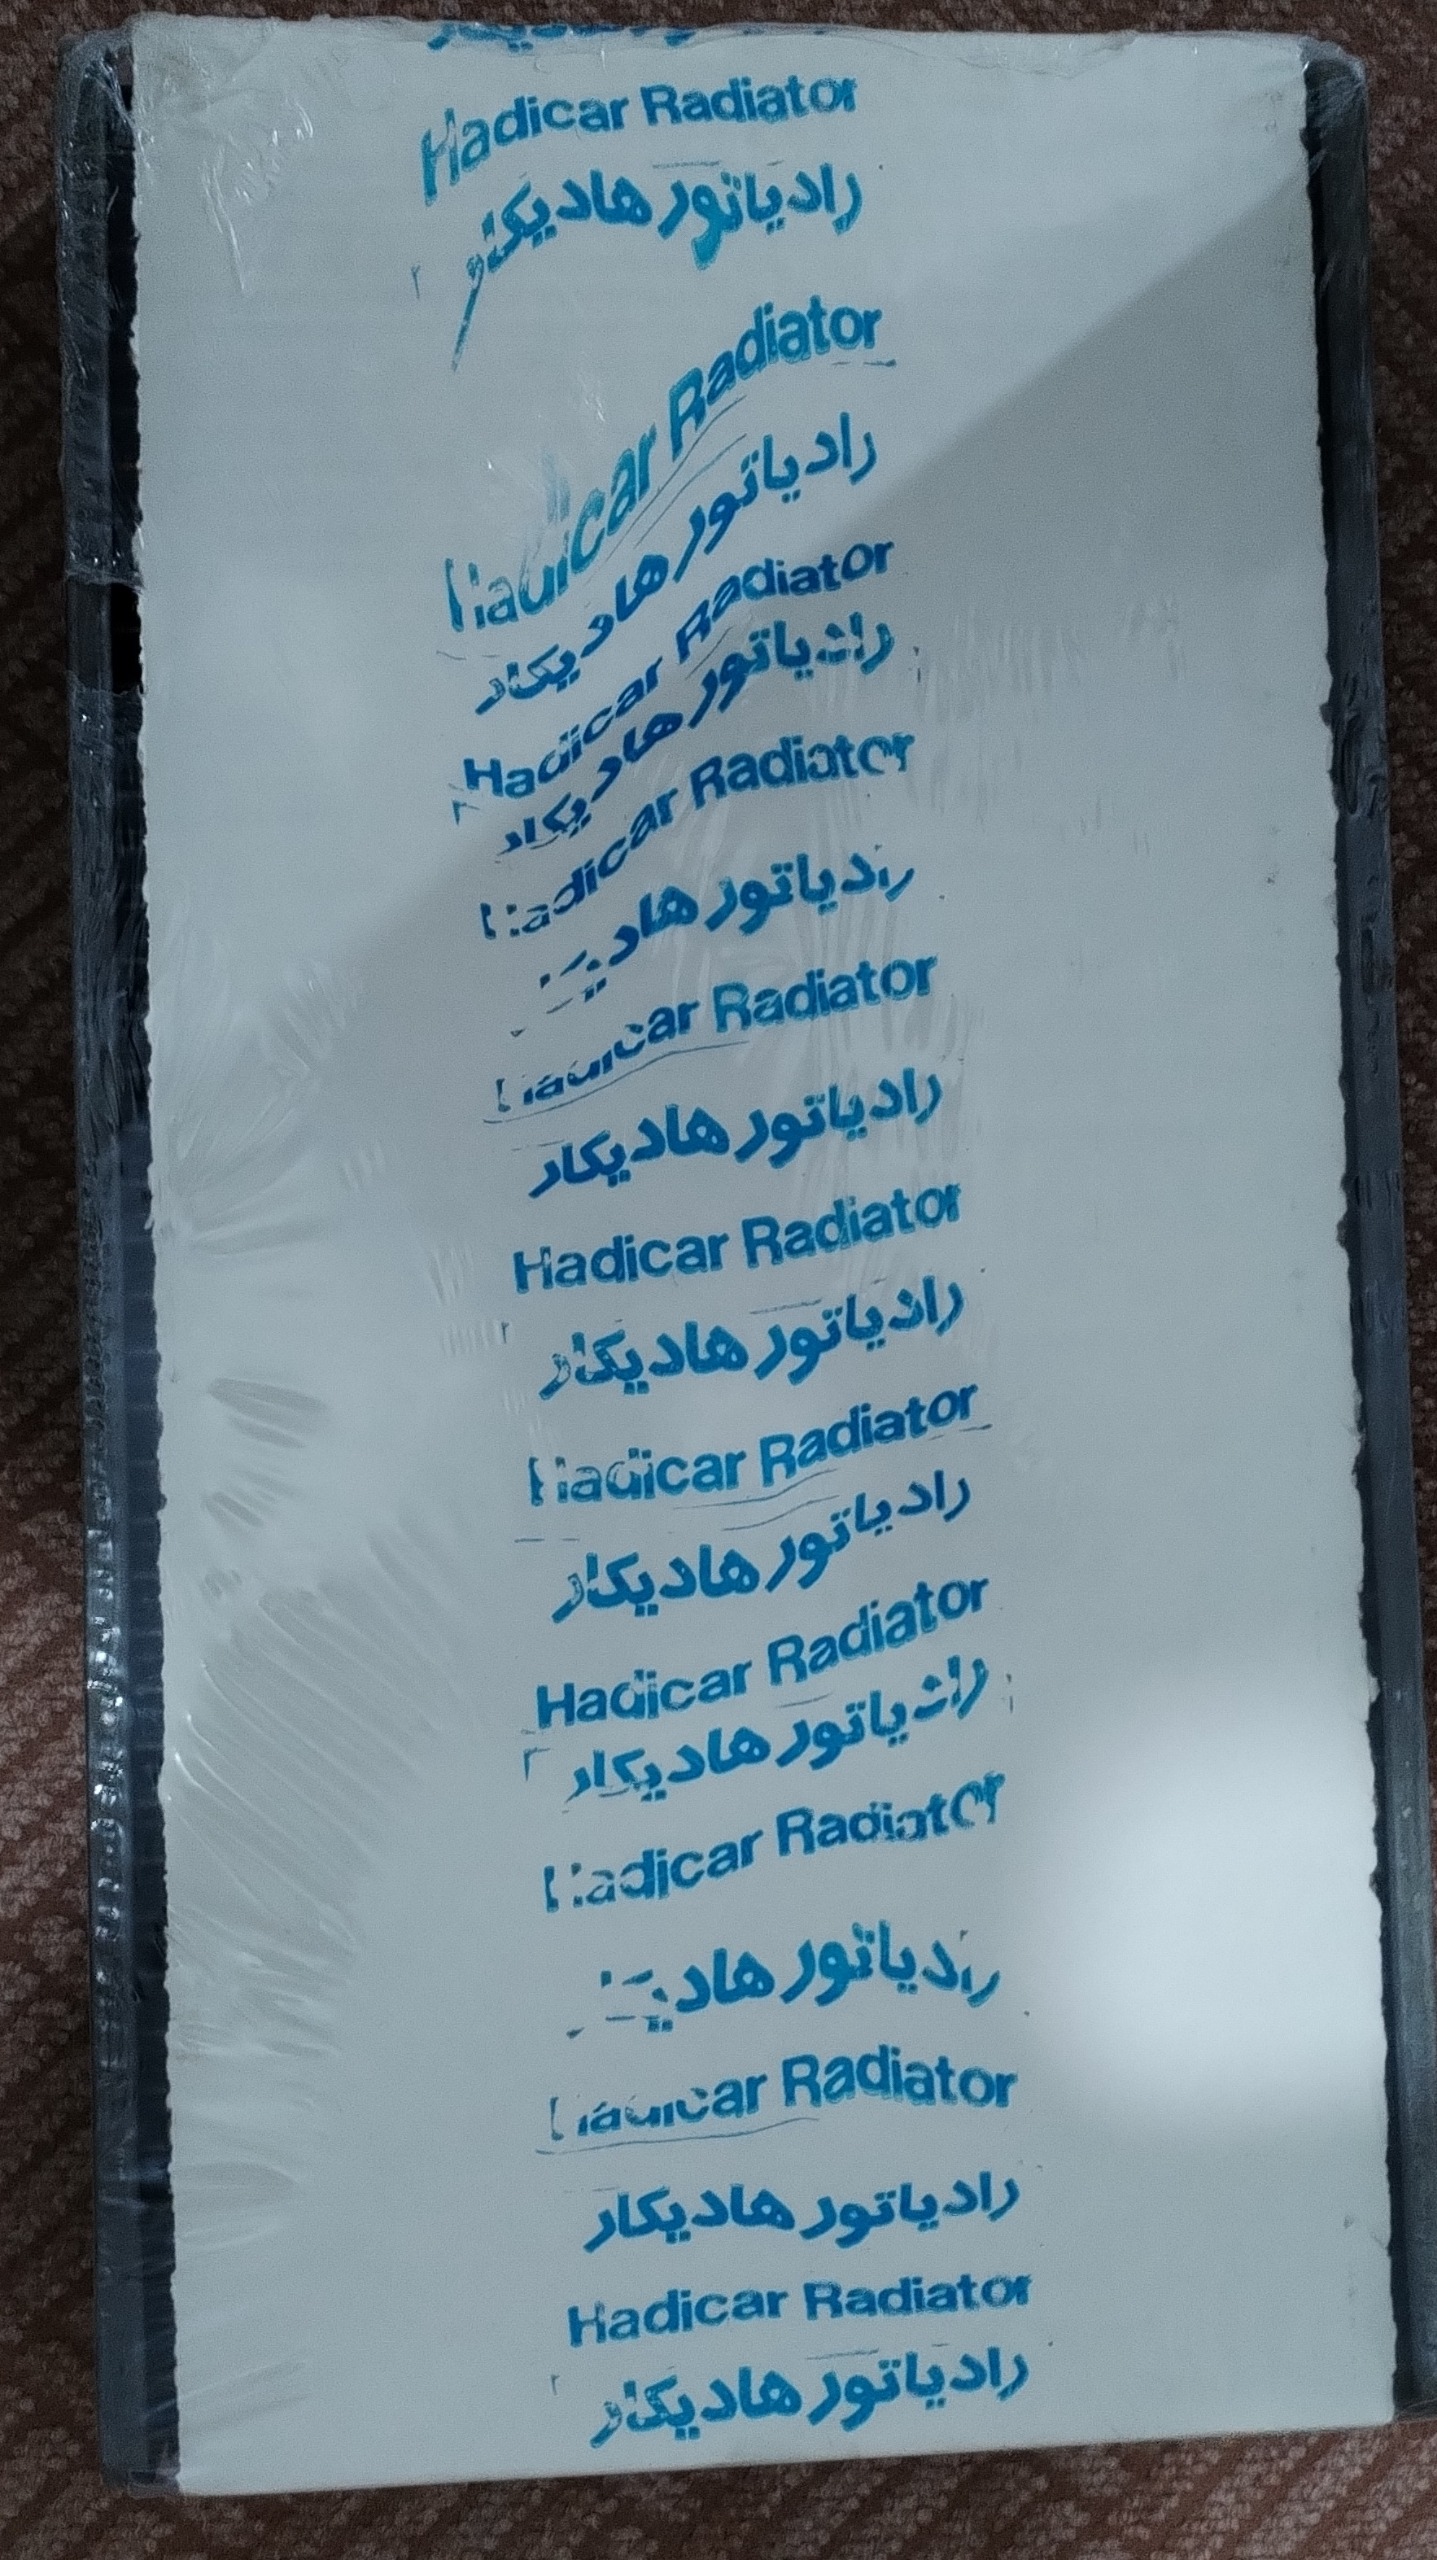 Hadicar Radiator
رادیاتور هادیکار
Hadicar Radiator
رادیاتور هادیکار
Hadicar Radiator
رادیاتور هادیکار
Hadicar Radiator
رادیاتور هادیکار
Hadicar Radiator
رادیاتور هادیکار
Hadicar Radiator
رادیاتور هادیکار
Hadicar Radiator
رادیاتور هادیکار
Hadicar Radiator
رادیاتور هادیکار
Hadicar Radiator
رادیاتور هادیکار
Hadicar Radiator
رادیاتور هادیکار
Hadicar Radiator
رادیاتور هادیکار